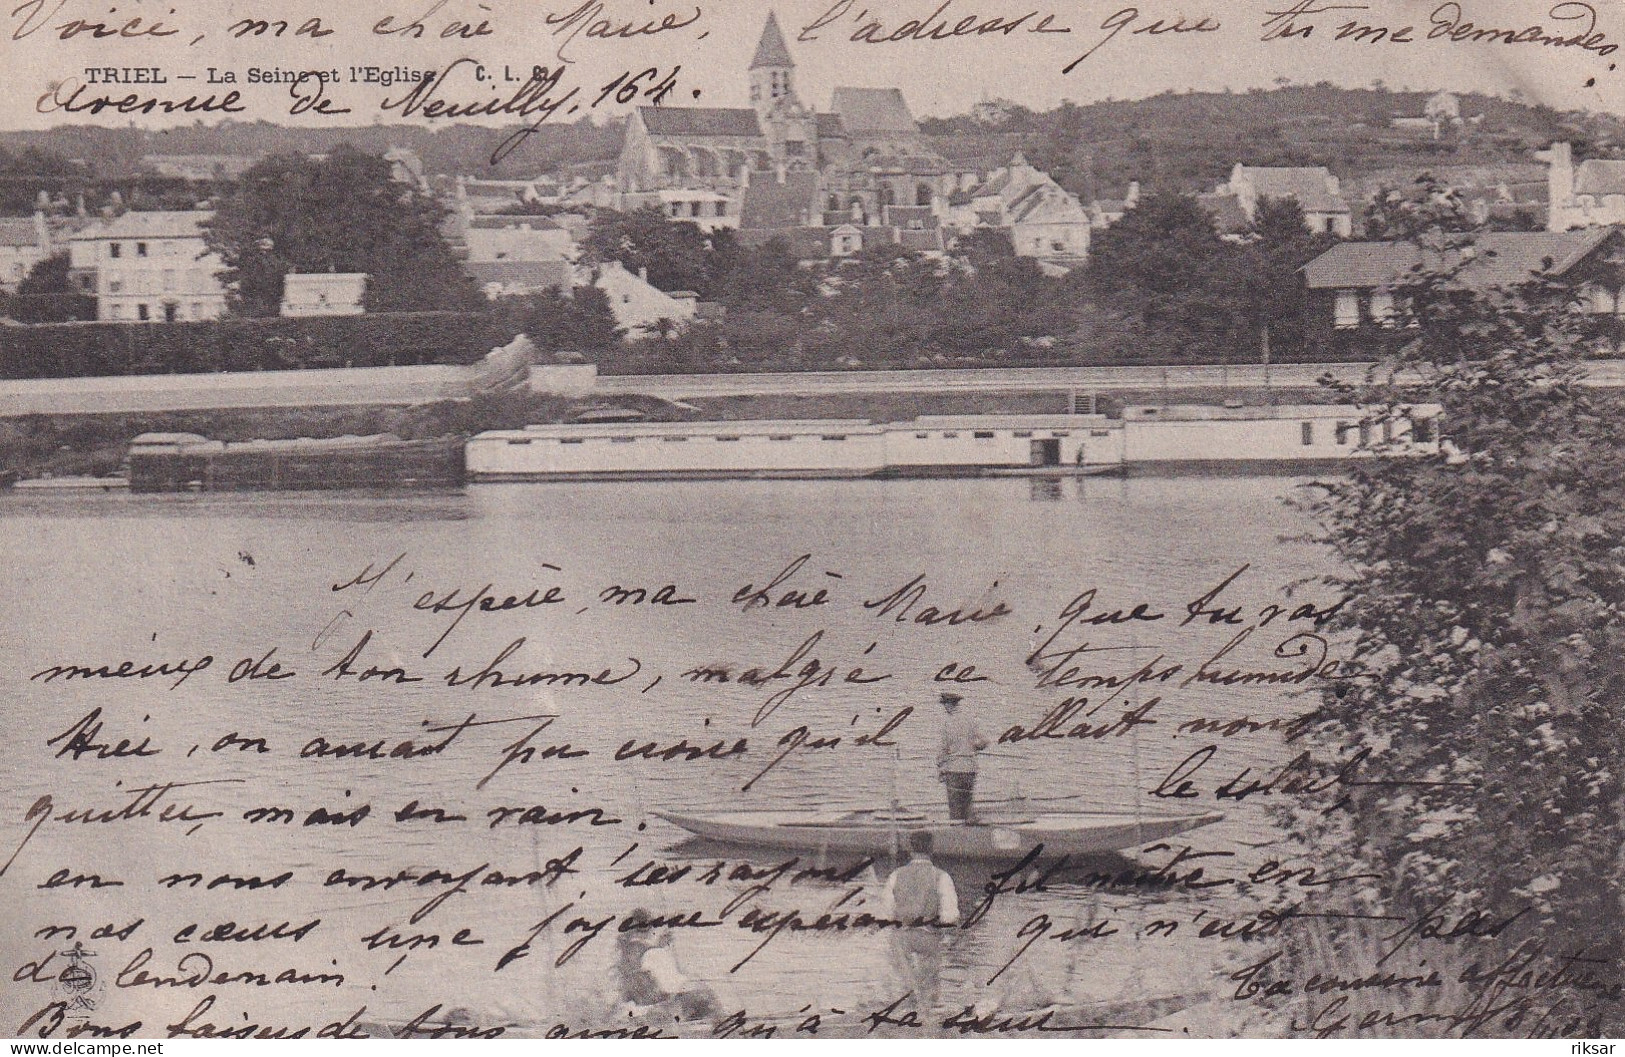 Voici, ma chère Marie, l'adresse que tu me demandes.
TRIEL — La Seine et l'Eglise C. L. C.
Avenue de Neuilly, 164.
J'espère, ma chère Marie, que tu vas
mieux de ton rhume, malgré ce temps humide
Hier, on aurait pu croire qu'il allait nous
quitter, mais en vain. le soleil,
en nous envoyant ses rayons fit naître en
nos cœurs une joyeuse espérance qui n'eut pas
de lendemain!
Ta cousine affectueuse
Bons baisers de tous ainsi qu'à ta sœur
riksar